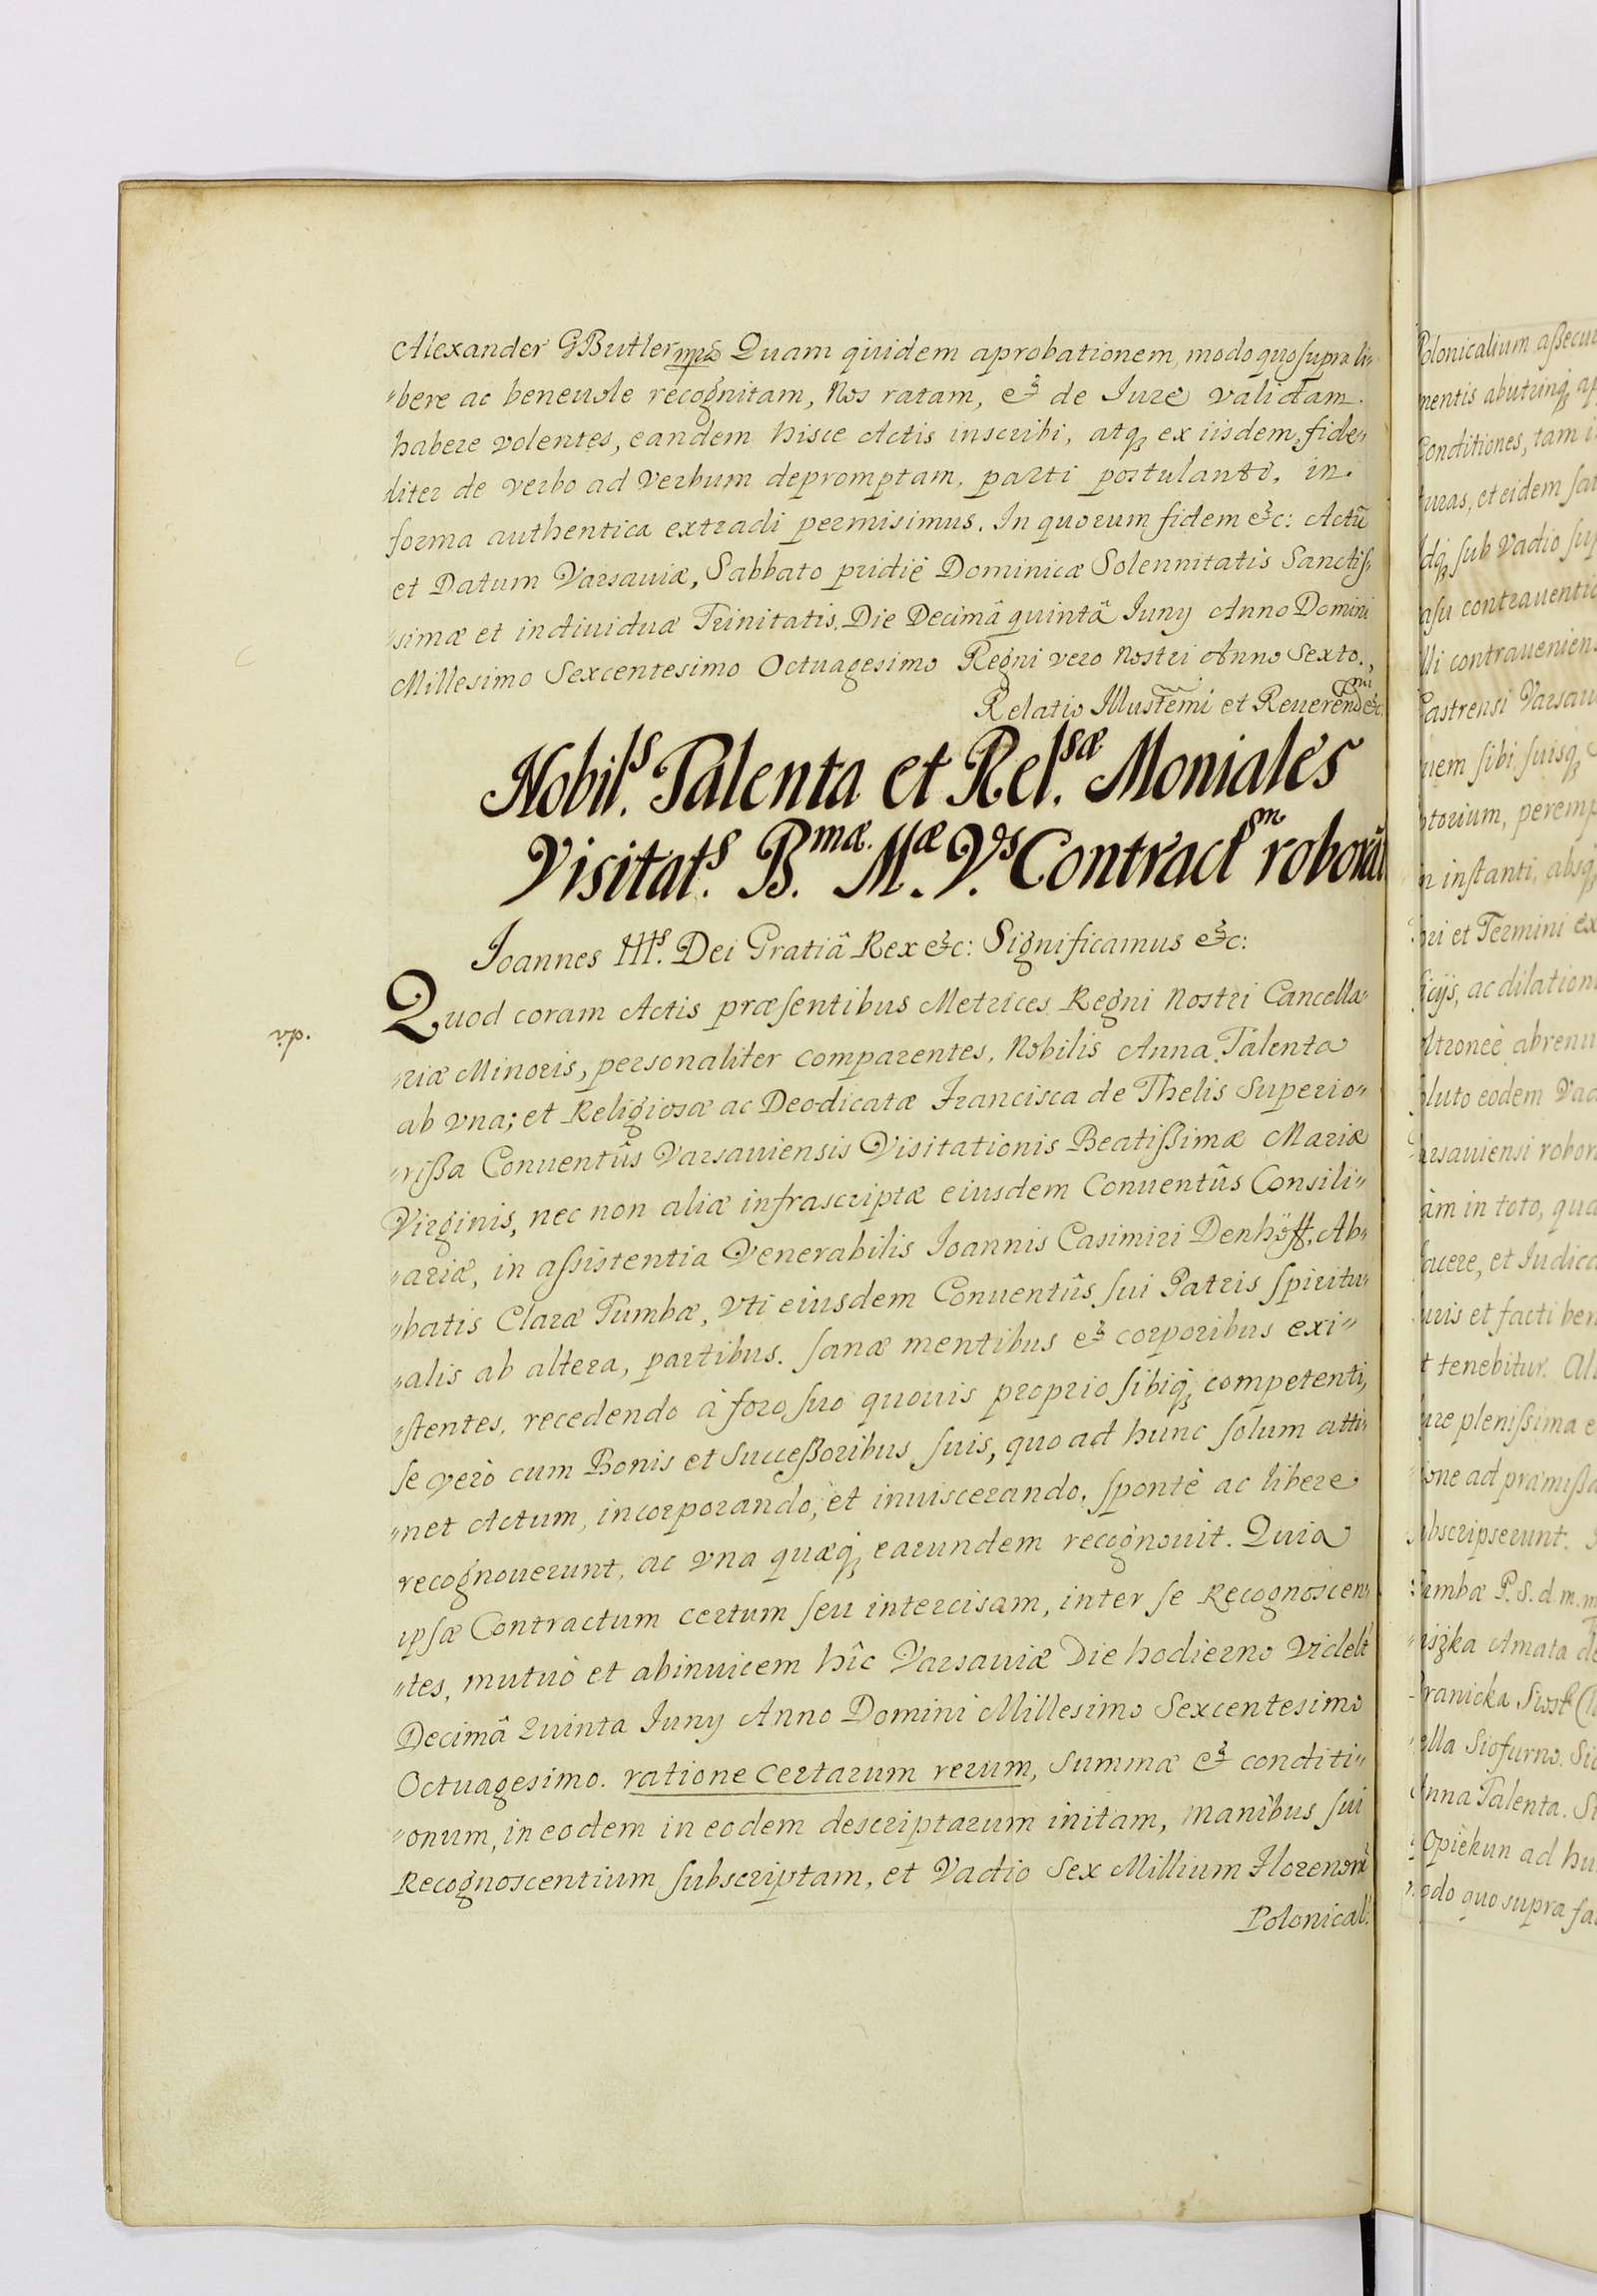 Alexander GButler mpp Quam quidem aprobationem, modo quo supra li„
„bere ac beneuole recognitam, Nos ratam, & de Iure validam.
habere volentes, eandem hisce Actis inscribi, atq₃ ex iisdem, fide„
„liter de verbo ad verbum depromptam, parti postulanti, in.
forma authentica extradi permisimus. In quorum fidem &c: Actũ
et Datum Varsauiæ, Sabbato pridiè Dominicæ Solennitatis Sanctiſ„
„simæ et indiuiduæ Trinitatis. Die Decimâ quintâ Iuny Anno Domini
Millesimo Sexcentesimo Octuagesimo Regni vero Nostri Anno Sexto.,
Relatio Illustẽmi et Reuerend^mi &c.
Nobil^s. Talenta et Rel^sæ. Moniales
Visitat^s. B^mæ. M^æ. V^s. Contract^m roborãt
Ioannes III^s. Dei Gratiâ Rex &c: Significamus &c:
Quod coram Actis præſentibus Metrices Regni Nostri Cancella„
„riæ Minoris, personaliter comparentes, Nobilis Anna Talenta
ab vna; et Religiosæ ac Deo-dicatæ Francisca de Thelis Superio„
„rißa Conuentûs Varsauiensis Visitationis Beatißimæ Mariæ
Virginis, nec non aliæ infrascriptæ eiusdem Conuentûs Consili„
„ariæ, in aßistentia Venerabilis Ioannis Casimiri Denhöff, Ab„
„batis Claræ Tumbæ, vti eiusdem Conuentûs ſui Patris ſpiritu„
„alis ab altera, partibus. ſanæ mentibus & corporibus exi„
„ſtentes, recedendo à foro ſuo quouis proprio ſibiq₃ competenti,
ſe verò cum Bonis et Succeßoribus ſuis, quo ad hunc ſolum atti„
„net Actum, incorporando, et inuiscerando, ſpontè ac libere
recognouerunt, ac vna quæq₃ earundem recognouit. Quia
ipſæ Contractum certum ſeu intercisam, inter ſe Recognoscen„
„tes, mutuò et abinuicem hîc Varsauiæ Die hodierno videlt
Decimâ Quinta Iuny Anno Domini Millesimo Sexcentesimo
Octuagesimo. ratione certarum rerum, summæ & conditi„
„onum, in eodem in eodem descriptarum initam, manibus ſui
Recognoscentium ſubscriptam, et Vadio Sex Millium Florenorũ
Polonical:
Polonicalium aßecu
mentis abutrinq₃ ap
Conditiones, tam i
turas, et eidem ſat
Idq₃ ſub Vadio ſup
aſu contrauentio
lli contrauenien
Castrensi Varsau
uem ſibi ſuisq₃
torium, peremp
n inſtanti, absq₃
ori et Termini ex
ficijs, ac dilation
ltroneè abrenu
luto eodem Vad
arsauiensi robor
àm in toto, qua
facere, et Iudica
Iuris et facti ben
t tenebitur. Al
ure plenißima e
ione ad præmißa
ubscripserunt.
Tumbæ P. S. d. m. m
iszka Amata de
ranicka Siost
ella Siofurno. Sio
Anna Talenta. Si
Opiekun ad hu
odo quo supra fa